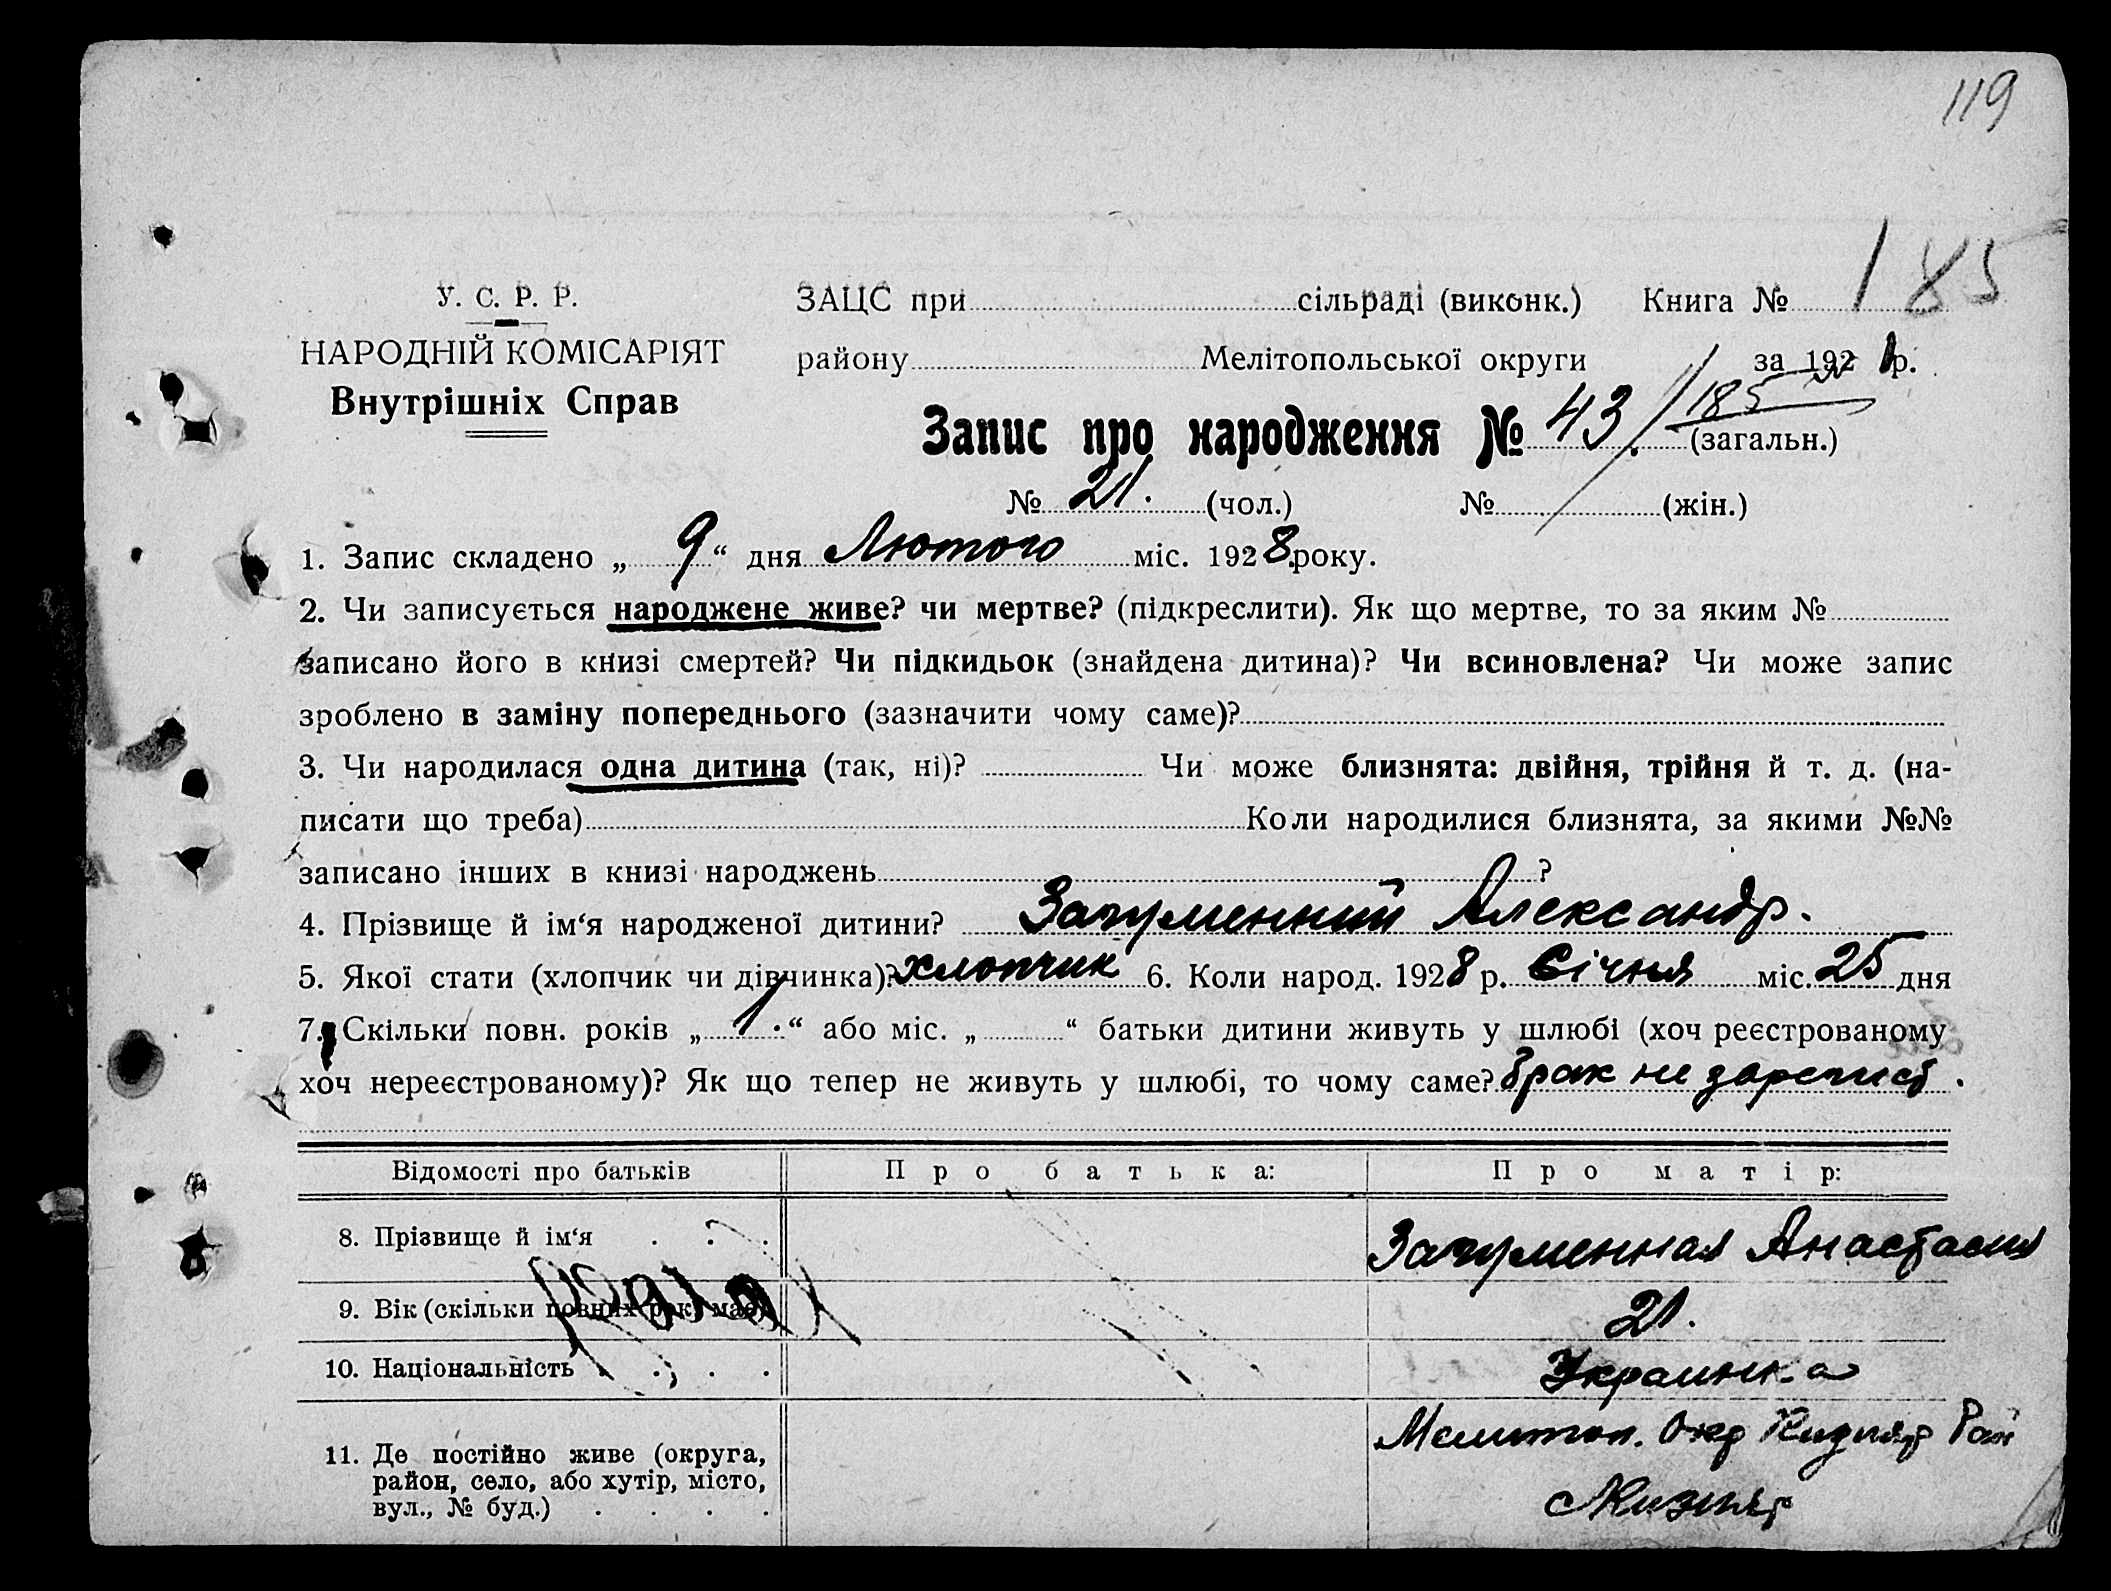 119
У. С. Р. Р.
НАРОДНІЙ КОМІСАРІЯТ
Внутрішніх Справ
ЗАЦС при сільраді (виконк.) Книга № 1 85
району Мелітопольської округи за 192 р.
185
Запис про народження № 43. (загальн.)
№ 21. (чол.) № (жін.)
1. Запис складено „ 9 “ дня Лютого міс. 1928 року.
2. Чи записується народжене живе? чи мертве? (підкреслити). Як що мертве, то за яким №
записано його в книзі смертей? Чи підкидьок (знайдена дитина)? Чи всиновлена? Чи може запис
зроблено в заміну попереднього (зазначити чому саме)?
3. Чи народилася одна дитина (так, ні)? Чи може близнята: двійня, трійня й т. д. (на-
писати що треба) Коли народилися близнята, за якими №№
записано інших в книзі народжень ?
4. Прізвище й ім‘я народженої дитини? Загуменний Александр.
5. Якої стати (хлопчик чи дівчинка)? хлопчик 6. Коли народ. 1928 р. Січня міс. 25 дня
7. Скільки повн. років „ 1. “ або міс. „ “ батьки дитини живуть у шлюбі (хоч реєстрованому
хоч нереєстрованому)? Як що тепер не живуть у шлюбі, то чому саме? брак не
Відомості про батьків Про батька: Про матір:
8. Прізвище й ім‘я . . . Загуменная Анастасия
9. Вік (скільки повних рок. має) 21.
10. Національність . . . . Украинка
11. Де постійно живе (округа,
район, село, або хутір, місто,
вул., № буд.) . . . .
Мелитоп. Окр Рай